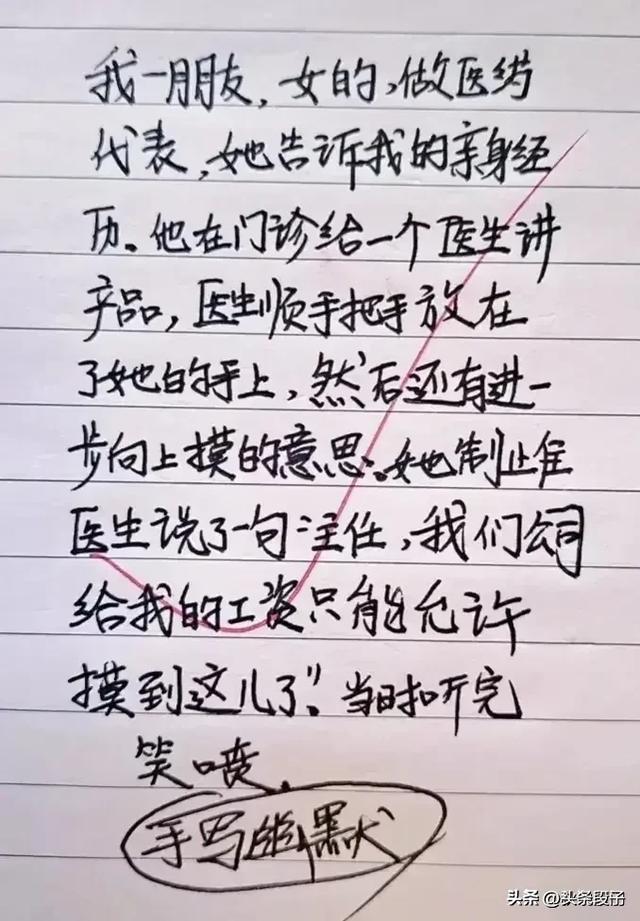 我一朋友，女的，做医药
代表，她告诉我的亲身经
历。他在门诊给一个医生讲
产品，医生顺手把手放在
了她的手上，然后还有进一
步向上摸的意思。她制止住
医生说了一句主任，我们公司
给我的工资只能允许
摸到这儿了”。当时听完
笑喷。
手写幽默
头条 @头条段子